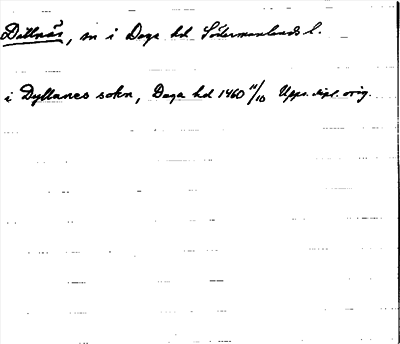 Dillnäs, sn i Daga hd Södermanlands l.
i Dyllanes sokn, Daga hd 1460 11/10 Upps. dipl. orig.